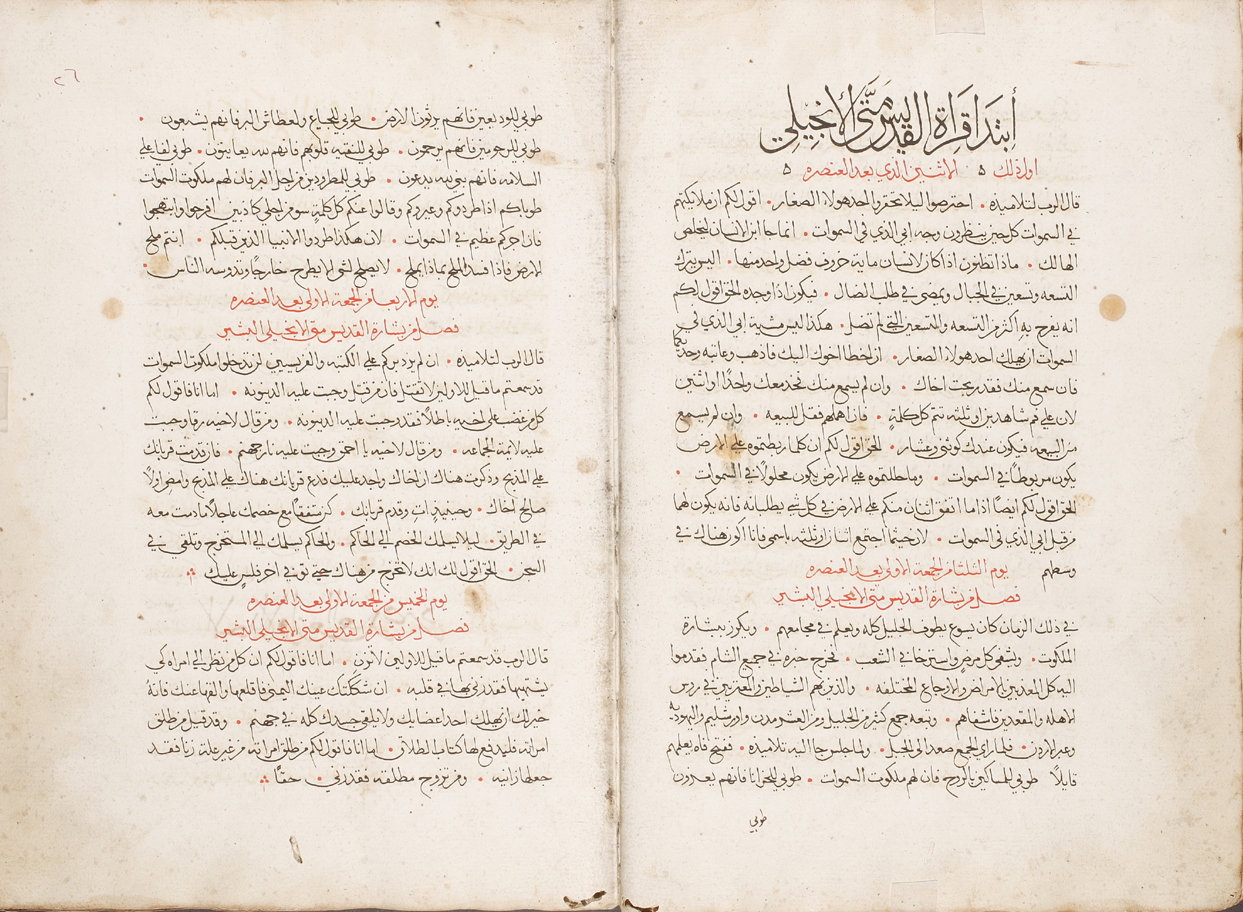 أبتدا قراة القديس متى الانجيلي
اول ذلك ه الاثنين الذي بعد العنصره ه
قال الرب لتلاميذه • احترصوا ليلا تحقروا احد هولاء الصغار • اقول لكم ان ملايكتهم
في السموات كل حين ينظرون وجه ابي الذي في السموات • انما جا ابن الانسان ليخلص
الهالك • ماذا تظنون اذا كان لانسان ماية خروف فضل واحد منها • اليس يترك
التسعه وتسعين في الجبال ويمضي في طلب الضال • فيكون اذا وجده الحق اقول لكم
انه يفرح به اكثر من التسعه والتسعين التي لم تضل • هكذا ليس مشية ابي الذي في
السموات ان يهلك احد هولاء الصغار • ان اخطا اخوك اليك فاذهب وعاتبه وحدكما
فان سمع منك فقد ربحت اخاك • وان لم يسمع منك فخذ معك واحدًا او اثنين
لان على فم شاهدين او ثلثه تتم كل كلمةٍ • فان اهملهم فقل للبيعه • وان لم يسمع
من البيعه فيكون عندك كوثني وعشار • الحق اقول لكم ان كلما ربطتموه على الارض
يكون مربوطًا في السموات • وما حللتموه على الارض يكون محلولًا في السموات •
الحق اقول لكم ايضًا اذا ما اتفق اثنان منكم على الارض في كل شي يطلبانه فانه يكون لهما
من قبل ابي الذي في السموات • لان حيثما اجتمع اثنان او ثلثه باسمي فانا اكون هناك في
وسطهم يوم الثلثا من الجمعة الاولى بعد العنصره
فصل من بشارة القديس متى الانجيلي البشير
في ذلك الزمان كان يسوع يطوف الجليل كله ويعلم في مجامعهم • ويكرز ببشارة
الملكوت • ويشفي كل مرض واسترخا في الشعب • فخرج خبره في جميع الشام فقدموا
اليه كل المعذبين بالامراض والاوجاع المختلفه • والذين بهم الشياطين والمعتريين في روس
الاهله والمقعدين فاشفاهم • وتبعه جمع كثير من الجليل ومن العشر مدن واورشليم واليهوديه
وعبر الاردن • فلما راي الجمع صعد الى الجبل • ولما جلس جا اليه تلاميذه • ففتح فاه يعلمهم
قايلًا طوبى للمساكين بالروح فان لهم ملكوت السموات • طوبى للحزانا فانهم يعزون
طوبى
٢٦
طوبى للودعا فانهم يرثون الارض • طوبى للجياع والعطاش البر فانهم يشبعون •
طوبى للرحومين فانهم يرحمون • طوبى للنقيه قلوبهم فانهم لله يعاينون • طوبى لفاعلي
السلامه فانهم بني لله يدعون • طوبى للمطرودين من اجل البر فان لهم ملكوت السموات
طوباكم اذا طردوكم وعيروكم وقالوا عنكم كل كلمةٍ سو من اجلي كاذبين افرحوا وابتهجوا
فان اجركم عظيم في السموات • لان هكذا طردوا الانبيا الذين قبلكم • انتم ملح
الارض فاذا فسد الملح بماذا يملح • لا يصلح لشي الا يطرح خارجًا وتدوسه الناس •
يوم الاربعا من الجمعة الاولى بعد العنصره
فصل من بشارة القديس متى الانجيلي البشير
قال الرب لتلاميذه • ان لم يزد بركم على الكتبه والفريسيين لن تدخلوا ملكوت السموات
قد سمعتم ما قيل للاولين لا تقتل فان من قتل وجبت عليه الدينونه • اما انا فاقول لكم
كل من غضب على اخيه باطلًا فقد وجبت عليه الدينونه • ومن قال لاخيه رقا وجبت
عليه لايمة الجماعه • ومن قال لاخيه يا احمق وجبت عليه نار جهنم • فان قدمت قربانك
على المذبح وذكرت هناك ان اخاك واجد عليك فدع قربانك هناك على المذبح وامض اولًا
صالح اخاك • وحينيذٍ اتِ وقدم قربانك • كن متفقًا مع خصمك عاجلًا ما دمت معه
في الطريق • ليلا يسلمك الخصم الى الحاكم • والحاكم يسلمك الى المستخرج وتلقى في
السجن • الحق اقول لك انك لا تخرج من هناك حتى توفي اخر فلسٍ عليك
يوم الخميس من الجمعه الاولى بعد العنصره
فصل من بشارة القديس متى الانجيلي البشير
قال الرب قد سمعتم ما قيل للاولين لا تزن • اما انا فاقول لكم ان كل من نظر الى امراه كي
يشتهيها فقد زنى بها في قلبه • ان شككتك عينك اليمنى فاقلعها والقها عنك فانهُ
خير لك ان يهلك احد اعضايك ولا يلقى جسدك كله في جهنم • وقد قيل من طلق
امراته فليدفع لها كتاب الطلاق • اما انا فاقول لكم من طلق امراته من غير علة زنا فقد
جعلها زانيه • ومن تزوج مطلقه فقد زنى • حقًا